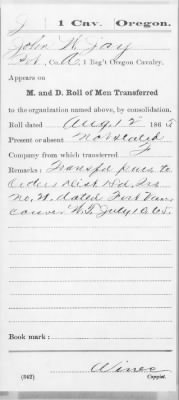 J 1 Cav. Oregon.
John W. Jay
Pvt., Co. A, 1 Reg't Oregon Cavalry.
Appears on
M. and D. Roll of Men Transferred
to the organization named above, by consolidation.
Roll dated Aug 12 1865
Present or absent Not stated
Company from which transferred F
Remarks: Transfd purs to
Orders Dist Hd Qrs
No. 21. dated Fort Van
couver W.T. July 1865.
Book mark:
(342) Copyist.